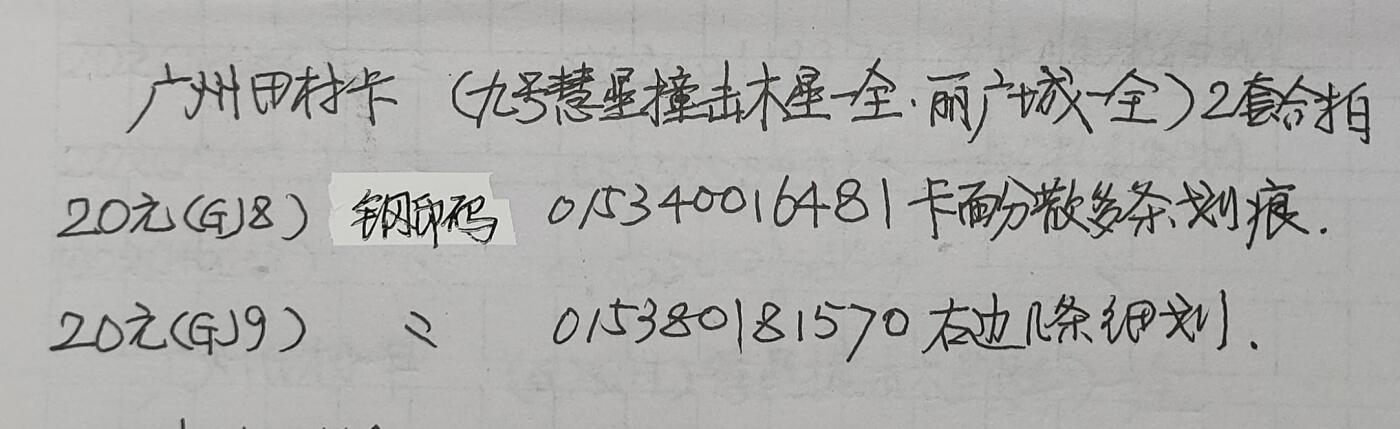 广州田村卡 (九号慧星撞击木星一全.丽广城一全)2套合拍
20元(GJ8) 钢印码 015340016481卡面分散多条划痕.
20元(GJ9) 〃 015380181570右边几条细划.